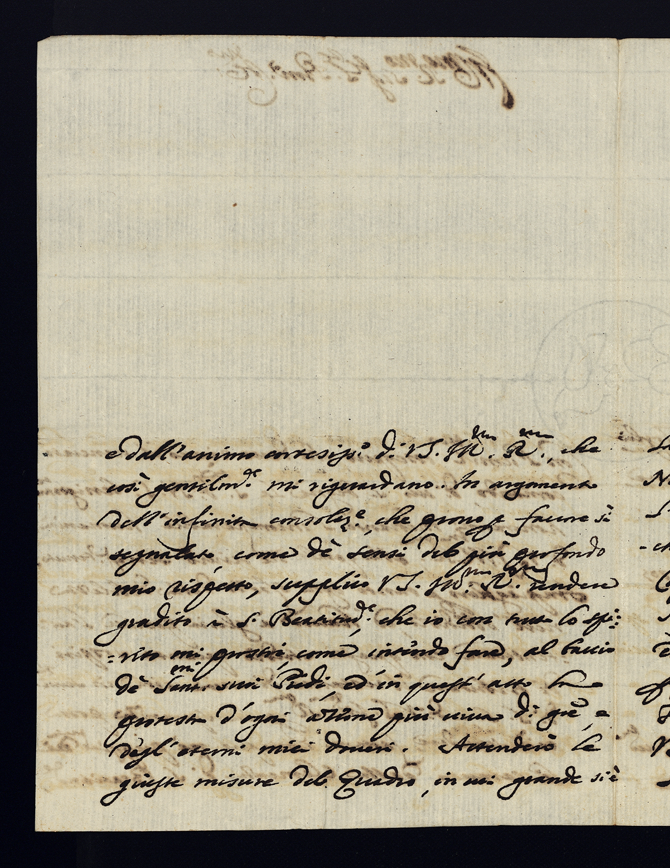 e dall'animo cortesiss.º di V.S. Ill.ma R.ma, che
così gentilm.te mi riguardano. In argomento
dell'infinita consolaz.e, che provo p favore sì
segnalato come de sensi del più profondo
mio rispetto, supplico V.S. Ill.ma R.ma rendere
gradito à S. Beatitud.e che io con tutto lo spi:
=rito mi prostri, come intendo fare, al bacio
de Sant.mi suoi Piedi, ed in quest' atto la
protesta d'ogni più viva di e
degl' eterni miei doveri. Attenderò le
giuste misure del Quadro, in cui grande si è